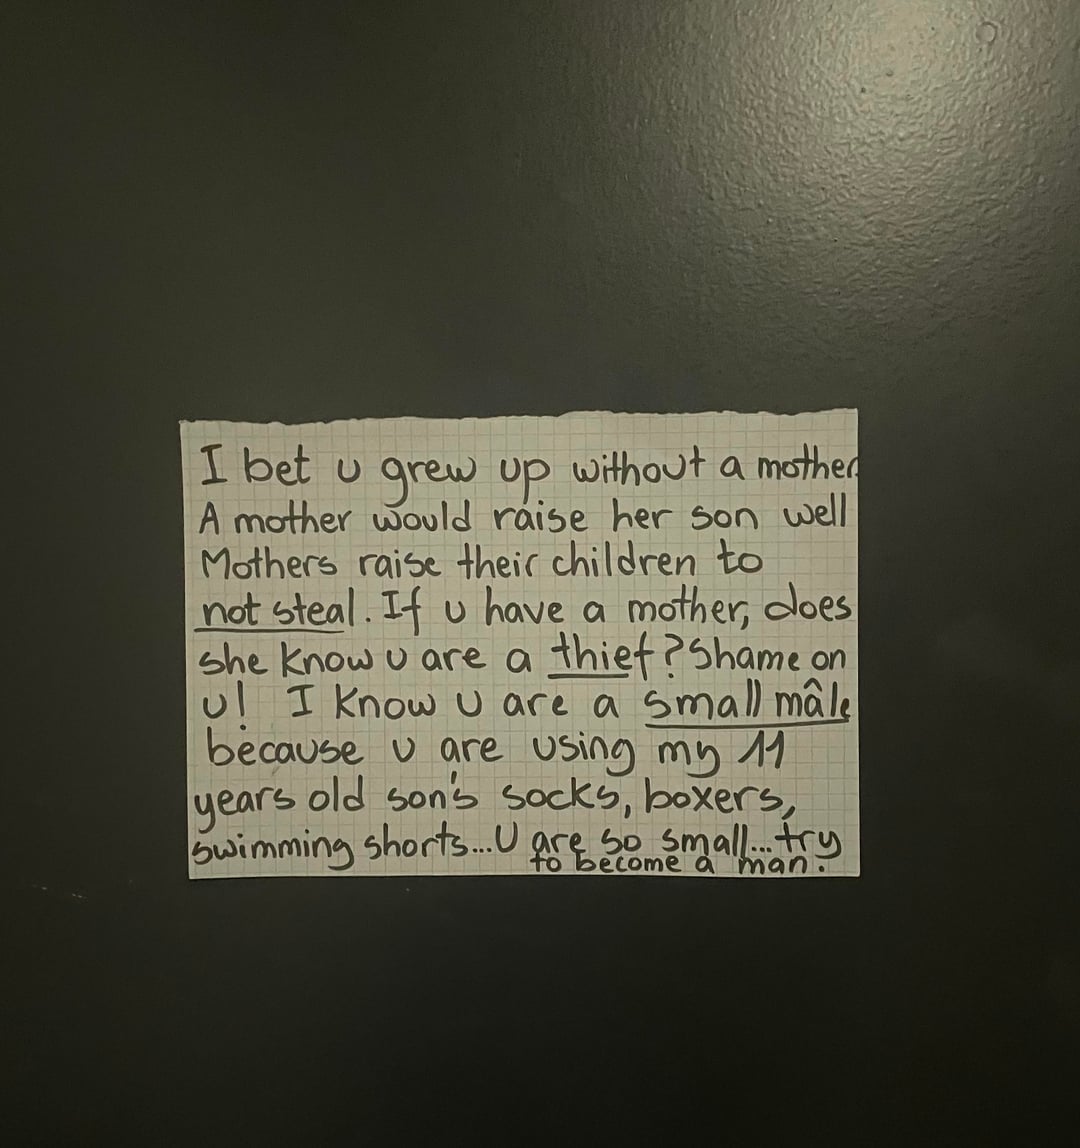 I bet u grew up without a mother.
A mother would raise her son well
Mothers raise their children to
not steal. If u have a mother, does
she know u are a thief? Shame on
u! I know u are a small mâle
because u are using my 11
years old son's socks, boxers,
swimming shorts... U are so small... try
to become a man.